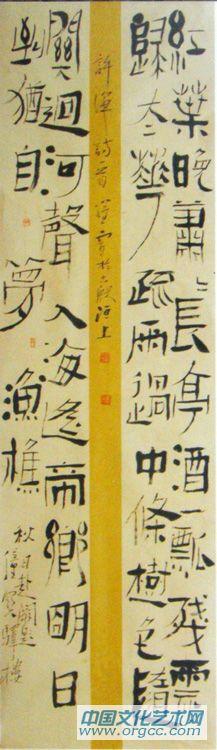 紅葉晚蕭〻長亭酒一瓢殘雲
歸太華疏雨過中條樹色隨
許渾詩一首
關迥河聲入海遙帝鄉明日
到猶自夢漁樵
秋日赴闕題
潼關驛樓
中国文化艺术网
www.orgcc.com